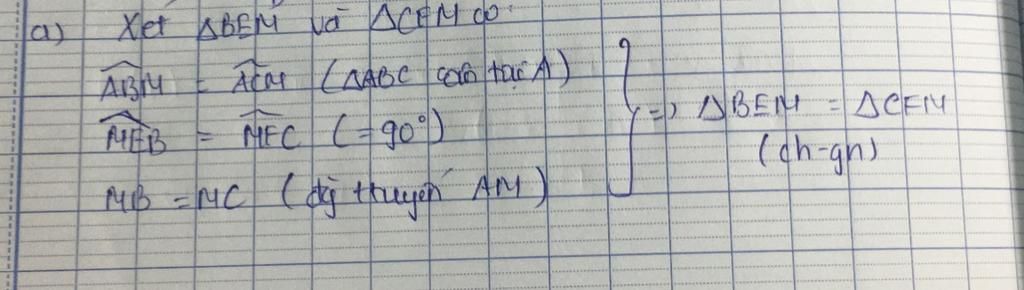 a) Xét ΔBEM và ΔCFM có:
ABM = ACM (ΔABC cân tại A)
MEB = MFC (=90°)
MB = MC (đg thuyến AM)
=> ΔBEM = ΔCFM
(ch-gn)